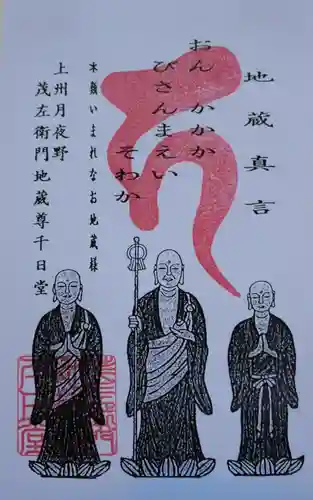 地蔵真言
おん かかか
びさんまえい
そわか
本顔いまれなお地蔵様
上州月夜野
茂左衛門地蔵尊千日堂